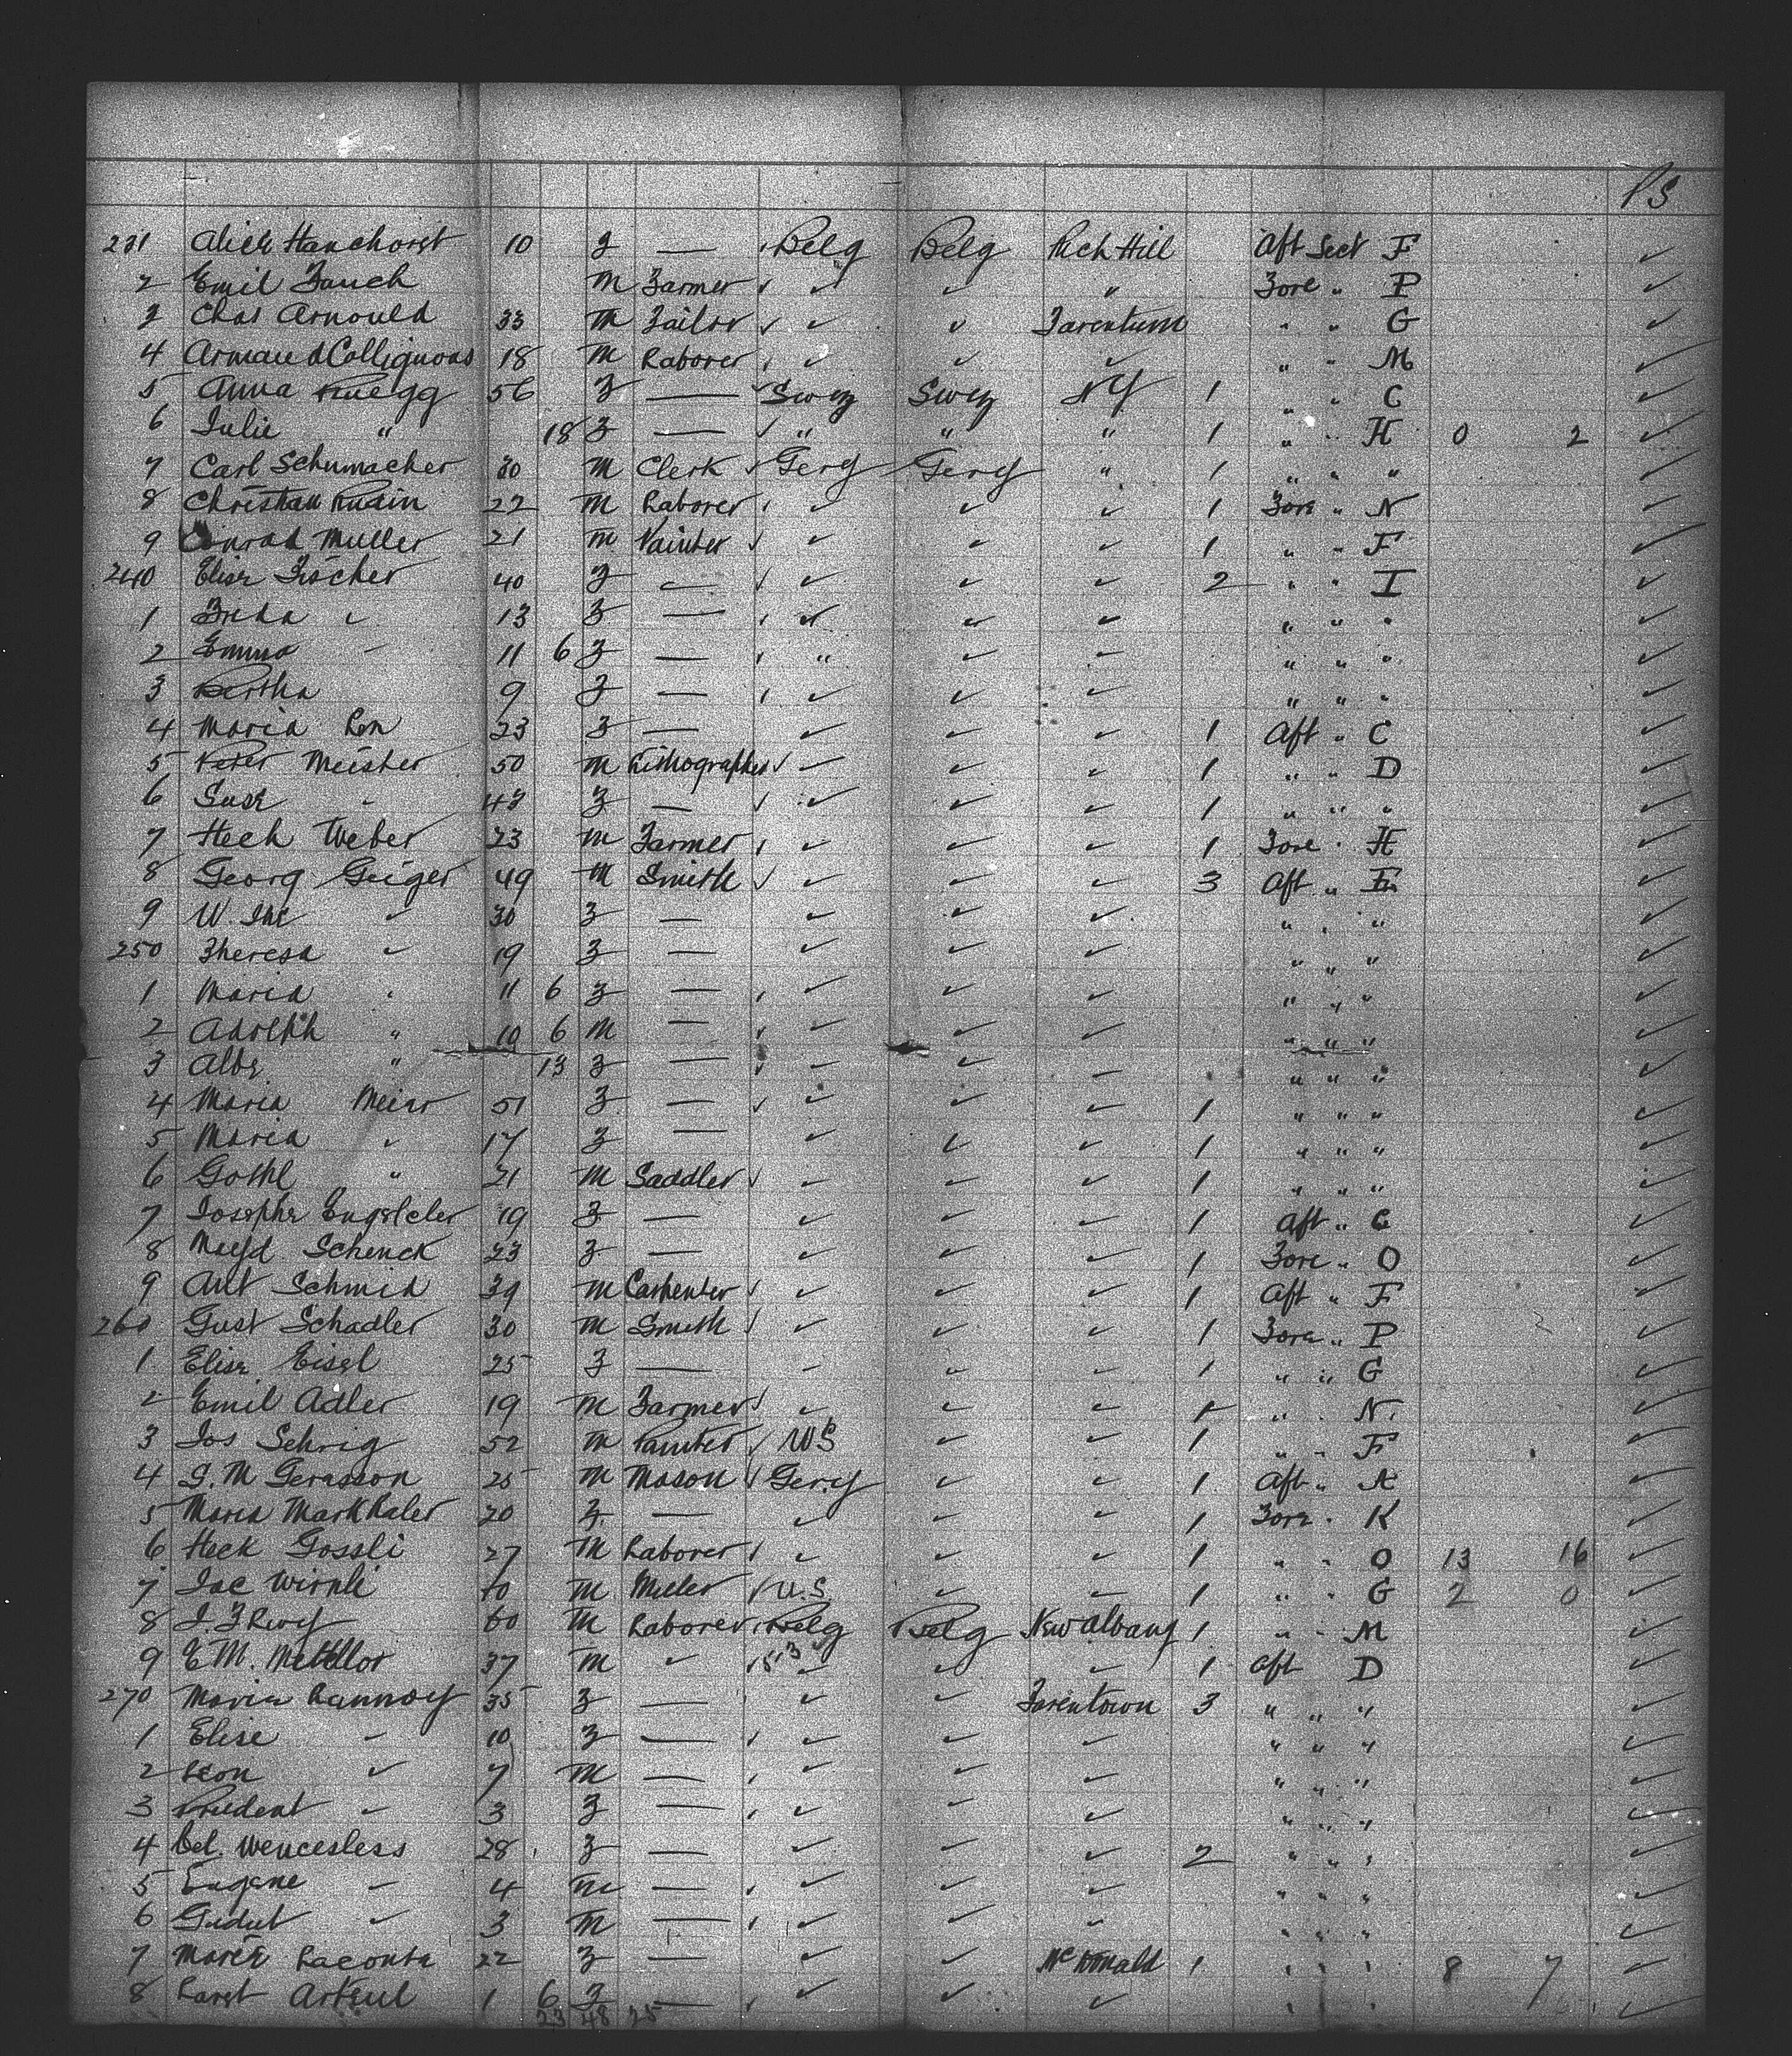 PS
231 Alich Hanchorst 10 F — Belg Belg Rich Hill Aft Sect F ✓
2 Emil Fauch M Farmer ✓ ✓ ✓ " Fore " P ✓
3 Chas Arnould 33 M Tailor ✓ ✓ ✓ Tarentum " " G ✓
4 Armand Collignons 18 M Laborer ✓ ✓ ✓ " " M ✓
5 Anna Ruegg 56 F — Swz Swz NY 1 " " C ✓
6 Julie " 18 F — ✓ " " " 1 " " H 0 2 ✓
7 Carl Schumacher 30 M Clerk ✓ Gery Gery " 1 " " " ✓
8 Christian Rudin 22 M Laborer ✓ ✓ ✓ 1 Fore " N ✓
9 Conrad Muller 21 M Painter ✓ ✓ ✓ ✓ 1 " " F ✓
240 Elise Fischer 40 F — ✓ ✓ ✓ ✓ 2 " " I ✓
1 Frida " 13 F — ✓ ✓ ✓ " " " ✓
2 Emma " 11 6 F — " ✓ ✓ " " " ✓
3 Bertha 9 F — ✓ ✓ ✓ " " " ✓
4 Maria 23 F — ✓ ✓ ✓ 1 Aft " C ✓
5 Peter Meister 50 M Lithographer ✓ ✓ ✓ ✓ 1 " " D ✓
6 Suse " 43 F — ✓ ✓ ✓ ✓ 1 " " " ✓
7 Hech Weber 23 M Farmer ✓ ✓ ✓ 1 Fore " H ✓
8 Georg Geiger 49 M Smith ✓ ✓ ✓ ✓ 3 Aft " E ✓
9 W. " 30 F — ✓ ✓ ✓ " " " ✓
250 Theresa " 19 F — ✓ ✓ ✓ " " " ✓
1 Maria " 11 6 F — ✓ ✓ ✓ " " " ✓
2 Adolph " 10 6 M — ✓ ✓ ✓ " " " ✓
3 Albe " 13 F — ✓ ✓ ✓ ✓ " " " ✓
4 Maria Meier 51 F — ✓ ✓ ✓ ✓ 1 " " " ✓
5 Maria " 17 F — ✓ ✓ ✓ 1 " " " ✓
6 Gothl " 21 M Saddler ✓ ✓ ✓ ✓ 1 " " " ✓
7 Josepha 19 F — ✓ ✓ ✓ 1 Aft " C ✓
8 Magd Schenck 23 F — ✓ ✓ ✓ 1 Fore " O ✓
9 Ant Schmid 39 M Carpenter ✓ ✓ ✓ ✓ 1 Aft " F ✓
260 Gust Schadler 30 M Smith ✓ ✓ ✓ ✓ 1 Fore " P ✓
1 Elise Eisel 25 F — ✓ ✓ ✓ 1 " " G ✓
2 Emil Adler 19 M Farmer ✓ ✓ ✓ ✓ 1 " " N ✓
3 Jos Sehrig 52 M Painter ✓ US ✓ ✓ 1 " " F ✓
4 J. M Gerasson 25 M Mason ✓ Gery ✓ ✓ 1 Aft " K ✓
5 Maria Markhaler 20 F — ✓ ✓ ✓ 1 Fore " K ✓
6 Heck Gossli 27 M Laborer ✓ ✓ ✓ 1 " " O 13 16 ✓
7 Jac Wirnli 40 M Miller ✓ U.S ✓ ✓ 1 " " G 2 0 ✓
8 J. F Rwy 60 M Laborer Belg Belg New Albany 1 " " M ✓
9 E M. Metellor 37 M ✓ ✓ ✓ ✓ 1 Aft D ✓
270 Maria Lannoy 35 F — ✓ ✓ Tarentown 3 " " " ✓
1 Elise " 10 F — ✓ ✓ ✓ ✓ " " " ✓
2 Leon " 7 M — ✓ ✓ ✓ " " " ✓
3 Prudent " 3 F — ✓ ✓ ✓ " " " ✓
4 Cel. Wencesless 28 F — ✓ ✓ ✓ 2 " " " ✓
5 Eugene " 4 M — ✓ ✓ ✓ " " " ✓
6 Gudut " 3 M — ✓ ✓ ✓ " " " ✓
7 Marie Laconta 22 F — ✓ ✓ McDonald 1 " " " 8 7 ✓
8 Arkeul 1 6 F — ✓ ✓ ✓ " " " ✓
23 48 25